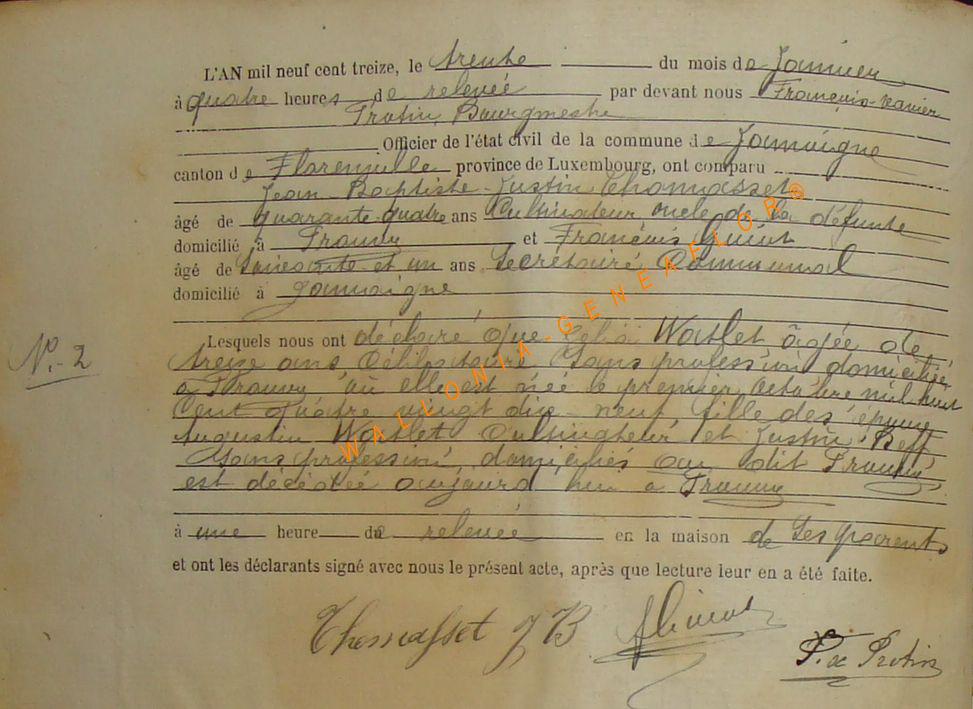 L'AN mil neuf cent treize, le trente du mois de Janvier
à quatre heures de relevée par devant nous François-Xavier
Protin Bourgmestre
Officier de l'état civil de la commune de Jamoigne
canton de Florenville province de Luxembourg, ont comparu
Jean Baptiste Justin Thomasset
âgé de quarante quatre ans Cultivateur oncle de la défunte
domicilié à Prouvy et François Guiot
âgé de Soixante et un ans Secrétaire Communal
domicilié à Jamoigne
N°- 2
Lesquels nous ont déclaré que Célia Watlet âgée de
treize ans Célibataire Sans profession domiciliée
à Prouvy où elle est née le premier octobre mil huit
Cent quatre vingt dix neuf fille des époux
Augustin Watlet Cultivateur et Justine
Sans profession domiciliés au dit Prouvy
est décédée aujourd'hui à Prouvy
à une heure de relevée en la maison de Ses parents
et ont les déclarants signé avec nous le présent acte, après que lecture leur en a été faite.
Thomasset J B
F. X Protin
WALLONIA-GENEAFLOR®